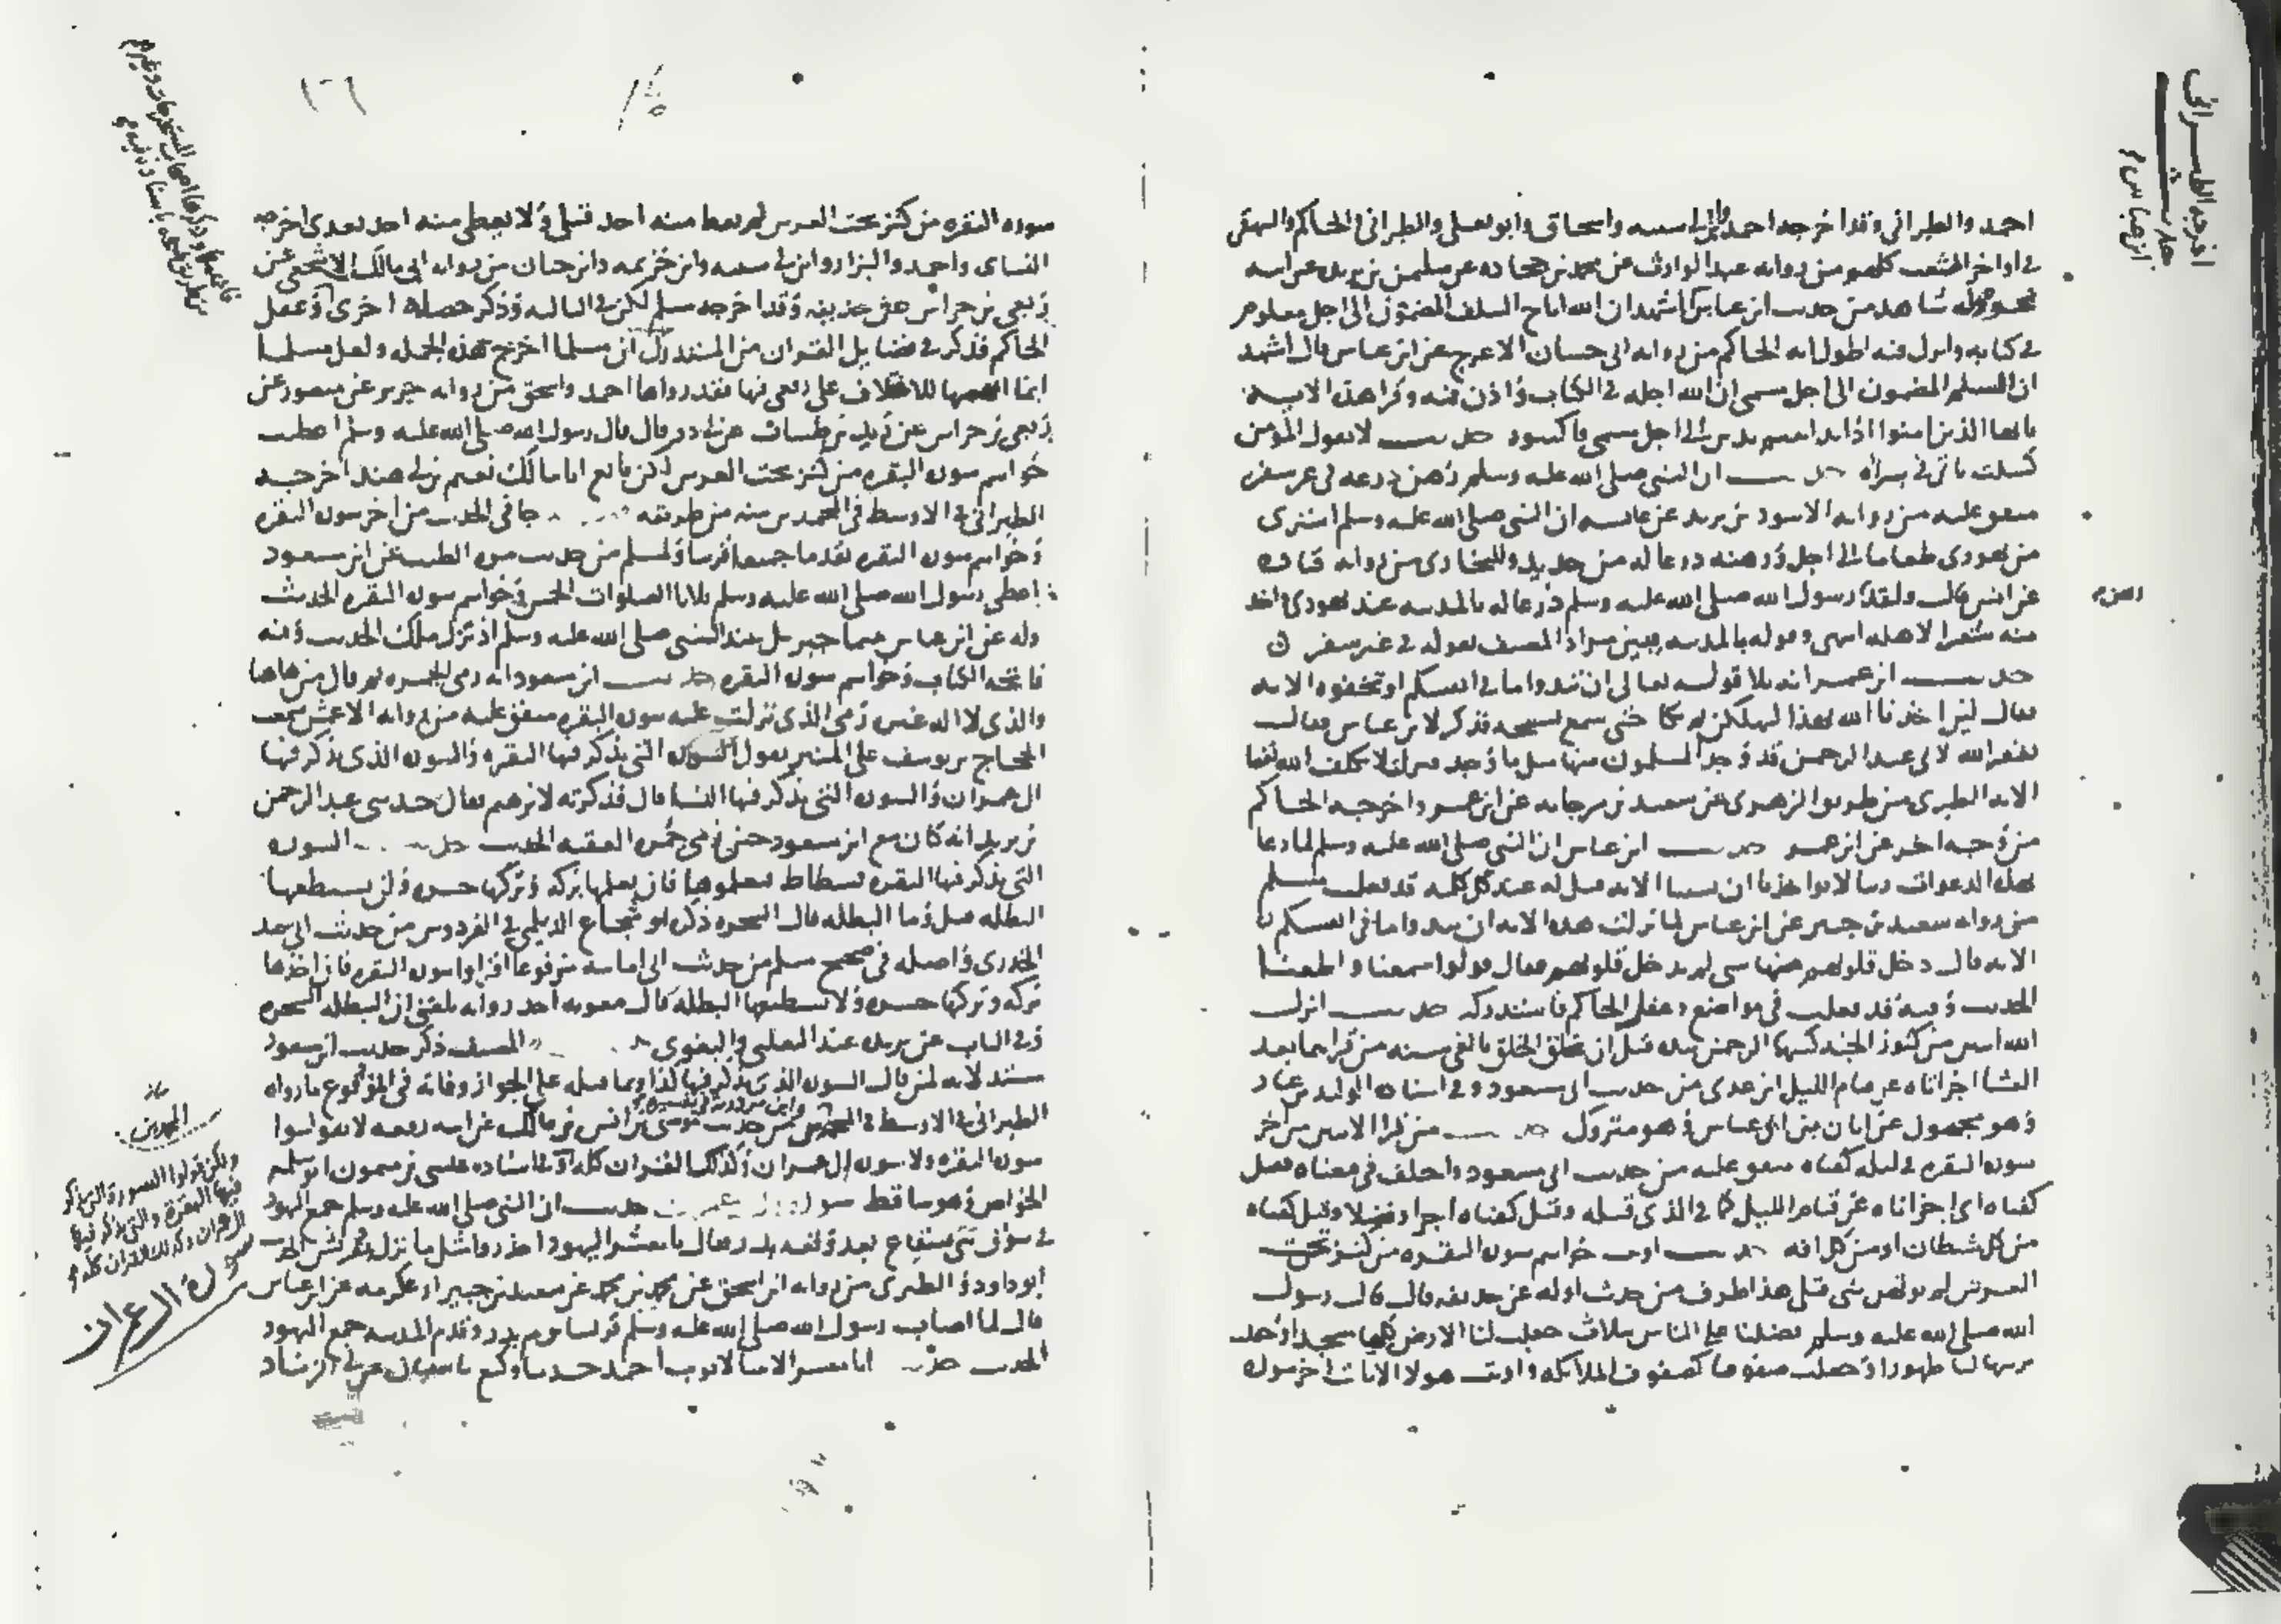 احمد والطبراني وقد اخرجه احمد وابن ابي شيبه واسحاق وابو يعلى والطبراني والحاكم والبيهقي
في اواخر الشعب كلهم من روايه عبد الوارث عن محمد بن جحاده عن سليمن بن بريده عن ابيه
نحوه وله شاهد من حديث ابن عباس اشهد ان الله اباح السلف المضمون الى اجل معلوم
في كتابه وانزل فيه اطول ايه الحاكم من روايه ابي حسان الاعرج عن ابن عباس قال اشهد
ان السلم المضمون الى اجل مسمى ان الله اجله في الكتاب واذن فيه وقرا هذه الايه
يايها الذين امنوا اذا تداينتم بدين الى اجل مسمى فاكتبوه حديث لا يقول المؤمن
كسلت ياتي في براه حديث ان النبي صلى الله عليه وسلم رهن درعه في غير سفر
متفق عليه من روايه الاسود بن يزيد عن عايشه ان النبي صلى الله عليه وسلم اشترى
من يهودي طعاما الى اجل ورهنه درعا له من حديد وللبخاري من روايه قتاده
عن انس قال ولقد رهن رسول الله صلى الله عليه وسلم درعا له بالمدينه عند يهودي اخذ
منه شعيرا لاهله انتهى وقوله بالمدينه يبين مراد المصنف بقوله في غير سفر
حديث ابن عمر انه تلا قوله تعالى ان تبدوا ما في انفسكم او تخفوه الايه
فقال لين اخذنا الله بهذا لنهلكن ثم بكا حتى سمع نشيجه فذكر لابن عباس فقال
يغفر الله لابي عبد الرحمن قد وجد المسلمون منها مثل ما وجد فنزل لا يكلف الله نفسا
الايه الطبري من طريق الزهري عن سعيد بن مرجانه عن ابن عمر واخرجه الحاكم
من وجه اخر عن ابن عمر حديث ابن عباس ان النبي صلى الله عليه وسلم لما دعا
بهذه الدعوات ربنا لا تواخذنا ان نسينا الايه قيل له عند كل كلمه قد فعلت مسلم
من روايه سعيد بن جبير عن ابن عباس لما نزلت هذه الايه ان تبدوا ما في انفسكم
الايه قال دخل قلوبهم منها شي لم يدخل قلوبهم فقال قولوا سمعنا واطعنا
الحديث وفيه قد فعلت في مواضع وغفل الحاكم فاستدركه حديث انزل
الله ايتين من كنوز الجنه كتبهما الرحمن بيده قبل ان يخلق الخلق بالفي سنه من قراهما بعد
العشا اجزاتاه عن قيام الليل ابن عدي من حديث ابي مسعود وفي اسناده الوليد بن عباد
وهو مجهول عن ابان بن ابي عياش وهو متروك حديث من قرا الايتين من اخر
سوره البقره في ليله كفتاه متفق عليه من حديث ابي مسعود واختلف في معناه فقيل
كفتاه اي اجزاتاه عن قيام الليل كما في الذي قبله وقيل كفتاه اجرا وفضلا وقيل كفتاه
من كل شيطان او من كل افه حديث اوتيت خواتيم سوره البقره من كنز تحت
العرش لم يوتهن نبي قبلي هذا طرف من حديث اوله عن حذيفه قال قال رسول
الله صلى الله عليه وسلم فضلنا على الناس بثلاث جعلت لنا الارض كلها مسجدا وجعلت
تربتها لنا طهورا وجعلت صفوفنا كصفوف الملايكه واوتيت هولا الايات اخر سوره
اخرجه الطبراني
حديث
ابن عباس
رهن
سوره البقره من كنز تحت العرش لم يعط منه احد قبلي ولا يعطى منه احد بعدي اخرجه
النساي واحمد والبزار وابن ابي شيبه وابن خزيمه وابن حبان من روايه ابي مالك الاشجعي عن
ربعي بن حراش عن حذيفه وقد اخرجه مسلم لكن في الثالثه وذكر خصله اخرى وغفل
الحاكم فذكر في فضايل القران من المستدرك ان مسلما اخرج هذه الجمله ولعل مسلما
انما للاختلاف على ربعي فيها فقد رواها احمد واسحق من روايه جرير عن منصور عن
ربعي بن حراش عن زيد بن ظبيان عن ابي ذر قال قال رسول الله صلى الله عليه وسلم اعطيت
خواتيم سوره البقره من كنز تحت العرش لكن تابع ابا مالك نعيم بن ابي هند اخرجه
الطبراني في الاوسط في المحمدين منه من طريقه جا في الحديث من اخر سوره البقره
وخواتيم سوره البقره تقدما جميعا قريبا ولمسلم من حديث مره الطيب عن ابن مسعود
اعطي رسول الله صلى الله عليه وسلم ثلاثا الصلوات الخمس وخواتيم سوره البقره الحديث
وله عن ابن عباس بينما جبريل عند النبي صلى الله عليه وسلم اذ نزل ملك الحديث وفيه
فاتحه الكتاب وخواتيم سوره البقره حديث ابن مسعود انه رمى الجمره ثم قال من هاهنا
والذي لا اله غيره رمى الذي نزلت عليه سوره البقره متفق عليه من روايه الاعمش سمعت
الحجاج بن يوسف على المنبر يقول السوره التي يذكر فيها البقره والسوره الذي يذكر فيها
ال عمران والسوره التي يذكر فيها النسا قال فذكرته لابرهيم فقال حدثني عبد الرحمن
بن يزيد انه كان مع ابن مسعود حين رمى جمره العقبه الحديث حديث السوره
التي يذكر فيها البقره فسطاط القران فتعلموها فان تعلمها بركه وتركها حسره ولن يستطيعها
البطله قيل وما البطله قال السحره ذكره ابو شجاع الديلمي في الفردوس من حديث ابي سعيد
الخدري واصله في صحيح مسلم من حديث ابي امامه مرفوعا اقراوا سوره البقره فان اخذها
بركه وتركها حسره ولا يستطيعها البطله قال معويه احد رواته بلغني ان البطله السحره
وفي الباب عن بريده عند الثعلبي والبغوي المصنف ذكر حديث ابن مسعود
مستندلا به لمن قال السوره الذي يذكر فيها كذا وبما قبله على الجواز وفاته في المرفوع ما رواه
الطبراني في الاوسط في من حديث موسى بن انس بن مالك عن ابيه رفعه لا تقولوا
وابن مردويه في تفسيره
سوره البقره ولا سوره ال عمران وكذلك القران كله وفي اسناده عبيس بن ميمون ابو سلمه
الخواص وهو ساقط حديث ان النبي صلى الله عليه وسلم جمع اليهود
في سوق بني قينقاع بعد وقعه بدر فقال يا معشر اليهود احذروا مثل ما نزل بقريش
ابو داود والطبري من روايه ابن اسحق عن محمد بن ابي محمد عن سعيد بن جبير او عكرمه عن ابن عباس
قال لما اصاب رسول الله صلى الله عليه وسلم قريشا يوم بدر وقدم المدينه جمع اليهود
الحديث حديث انا معشر الانبيا احمد حدثنا وكيع سفيان عن ابي الزناد
١٢٦
ولكن قولوا السورة التي يذكر
فيها البقرة والتي يذكر فيها
ال عمران وكذلك القران كله
سورة ال عمران